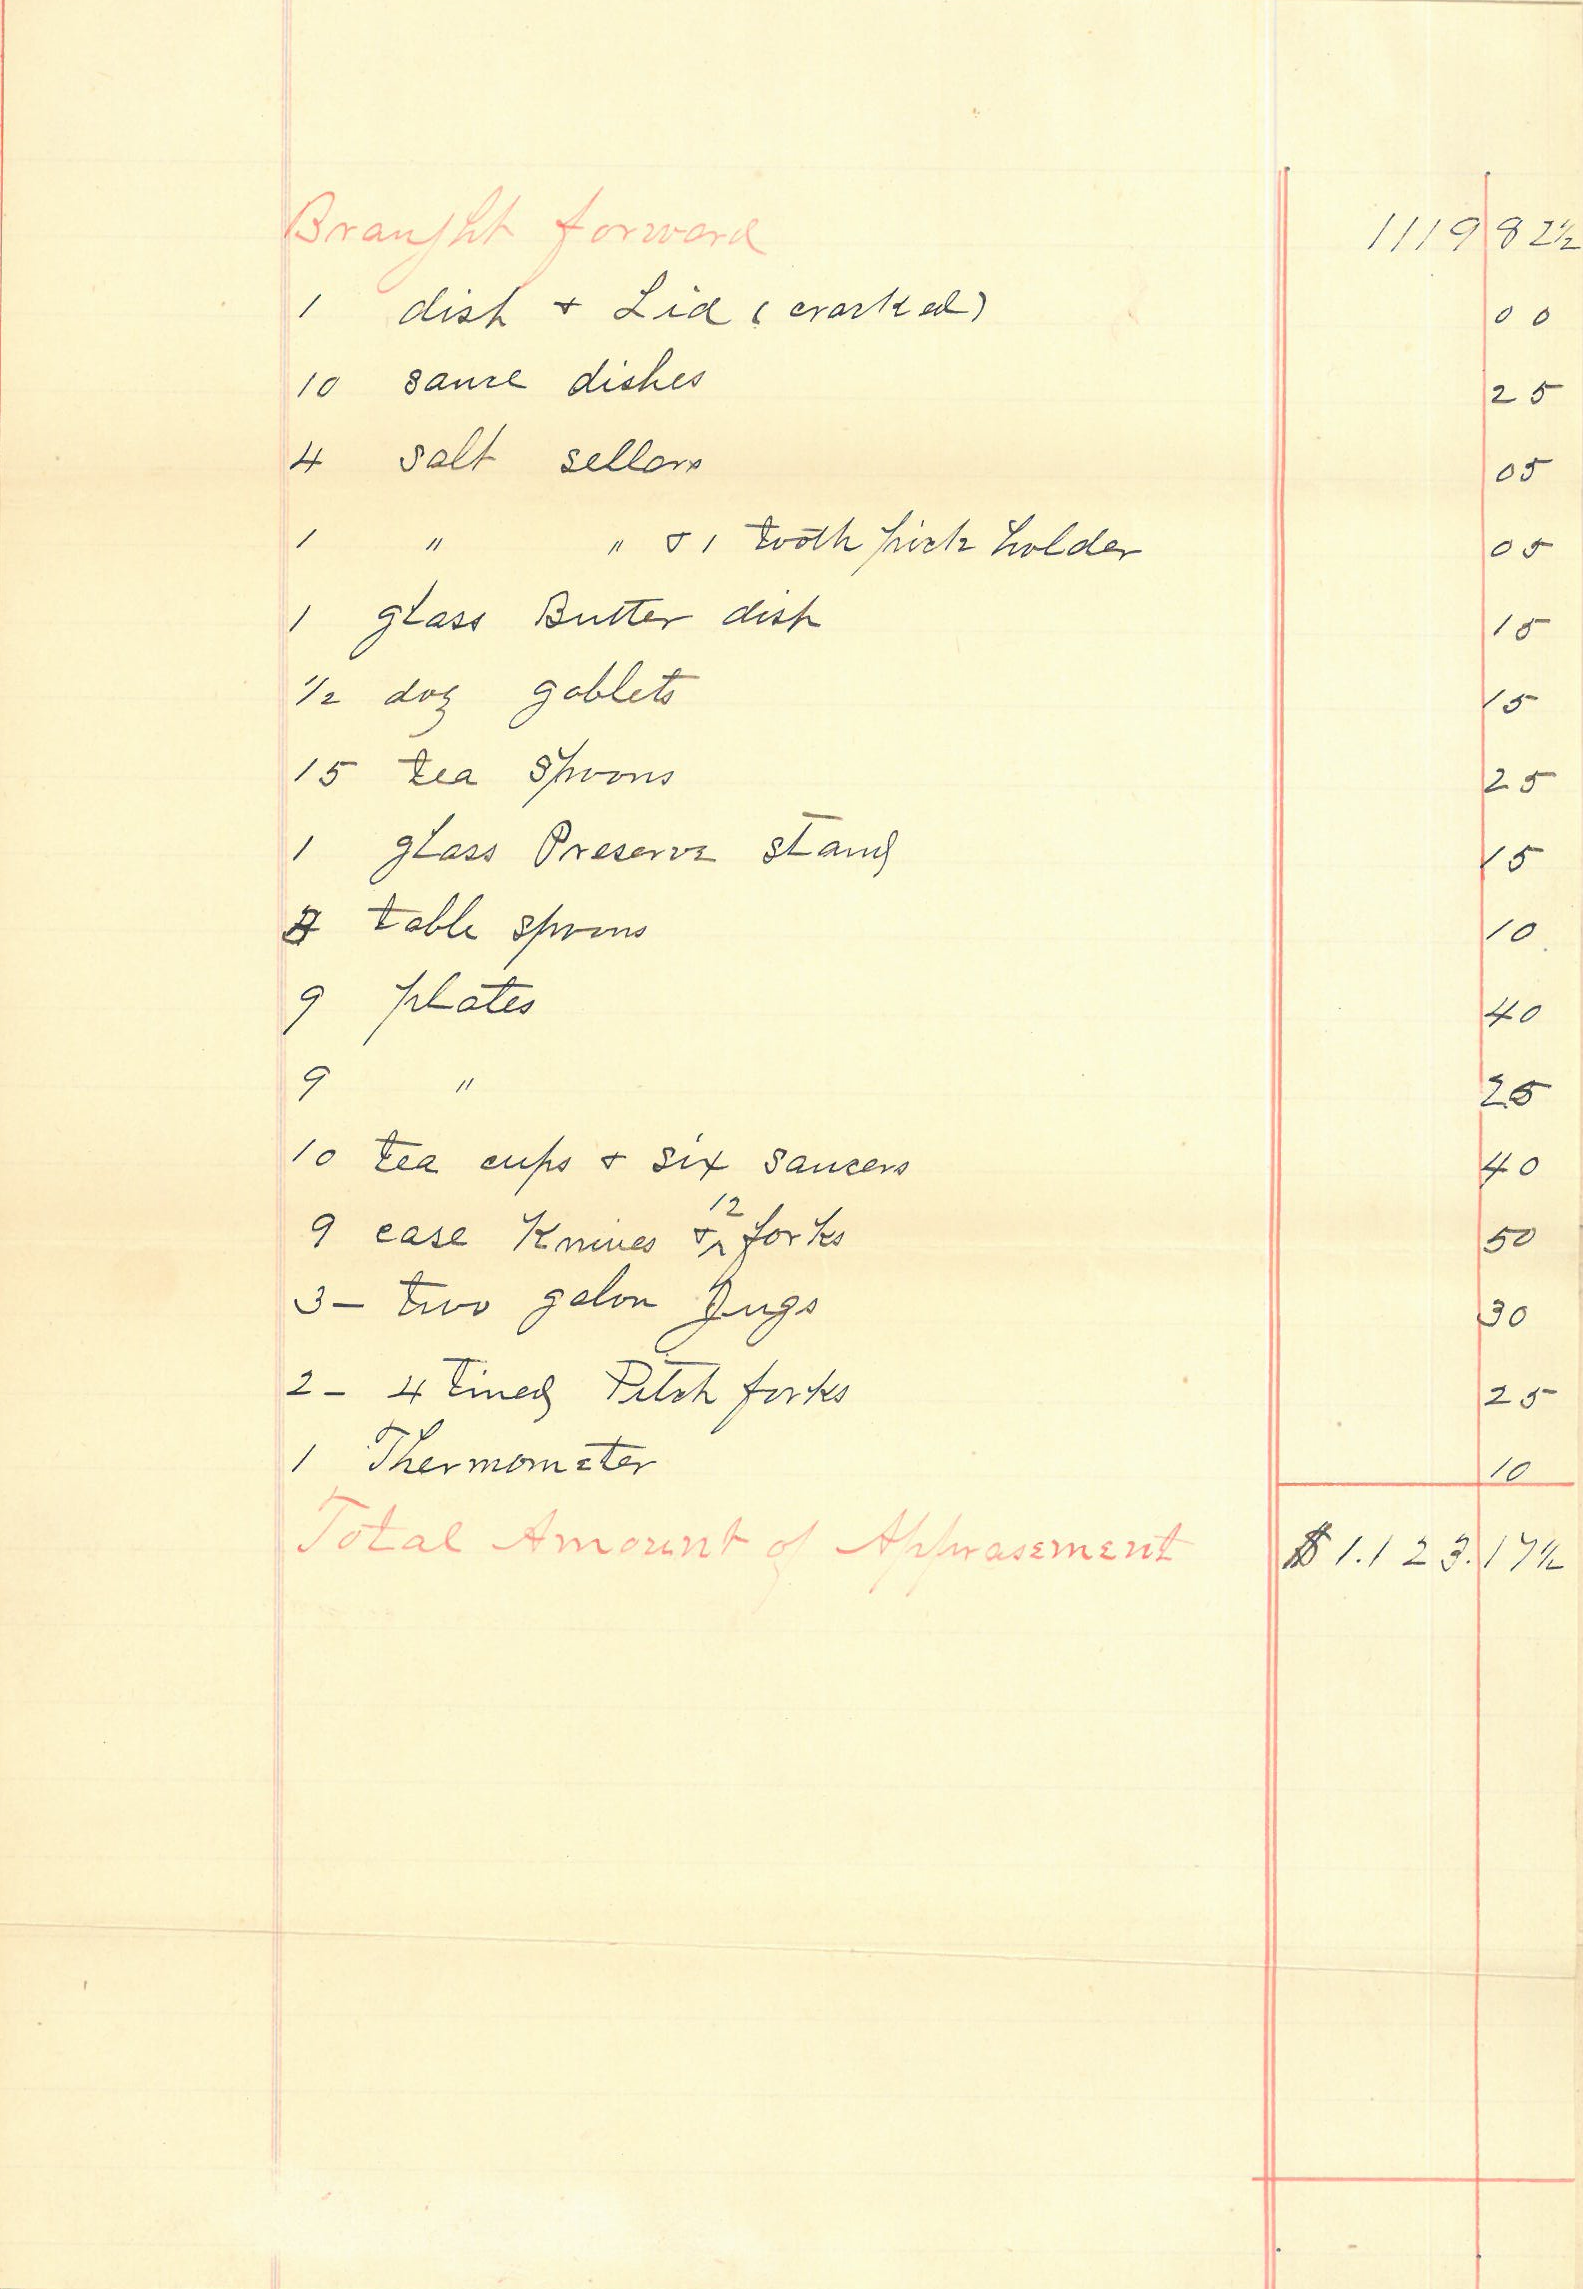 Braught forward 1119 82½
1 dish & Lid (cracked) 00
10 sauce dishes 25
4 salt sellars 05
1 " " & 1 tooth pick holder 05
1 glass Butter dish 15
½ doz goblets 15
15 tea spoons 25
1 glass Preserve stand 15
table spoons 10
9 plates 40
9 " 25
10 tea cups & six saucers 40
9 case Knives & 12 forks 50
3 – two galon Jugs 30
2 – 4 tined Pitch forks 25
1 Thermometer 10
Total Amount of Apprasement $1.123.17½